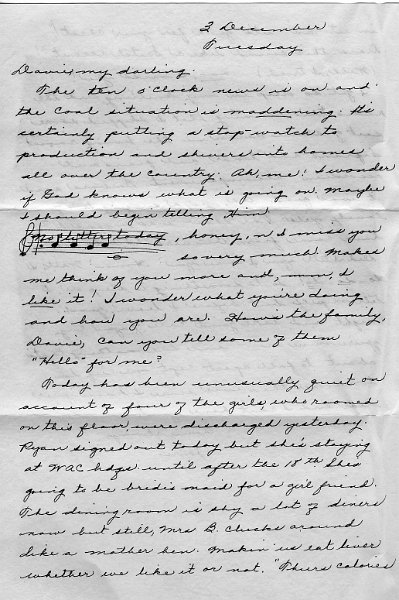 2 December
Tuesday
Davie, my darling.
The ten o'clock news is on and
the coal situation is maddening. It's
certainly putting a stop-watch to
production and shivers into homes
all over the country. Ah, me! I wonder
if God knows what is going on. Maybe
I should begin telling Him
no letter today, honey, n I miss you
so very much. Makes
me think of you more and, mmm, I
like it! I wonder what you're doing
and how you are. How's the family,
Davie, can you tell some of them
"Hello" for me?
Today has been unusually quiet on
account of four of the girls, who roomed
on this floor, were discharged yesterday.
Ryan signed out today but she's staying
at WAC hdqs. until after the 18th. She's
going to be brides maid for a girl friend.
The dining room is shy a lot of diners
now but still, Mrs B. clucks around
like a mother hen. Makin' us eat liver
whether we like it or not. "Thurs calories